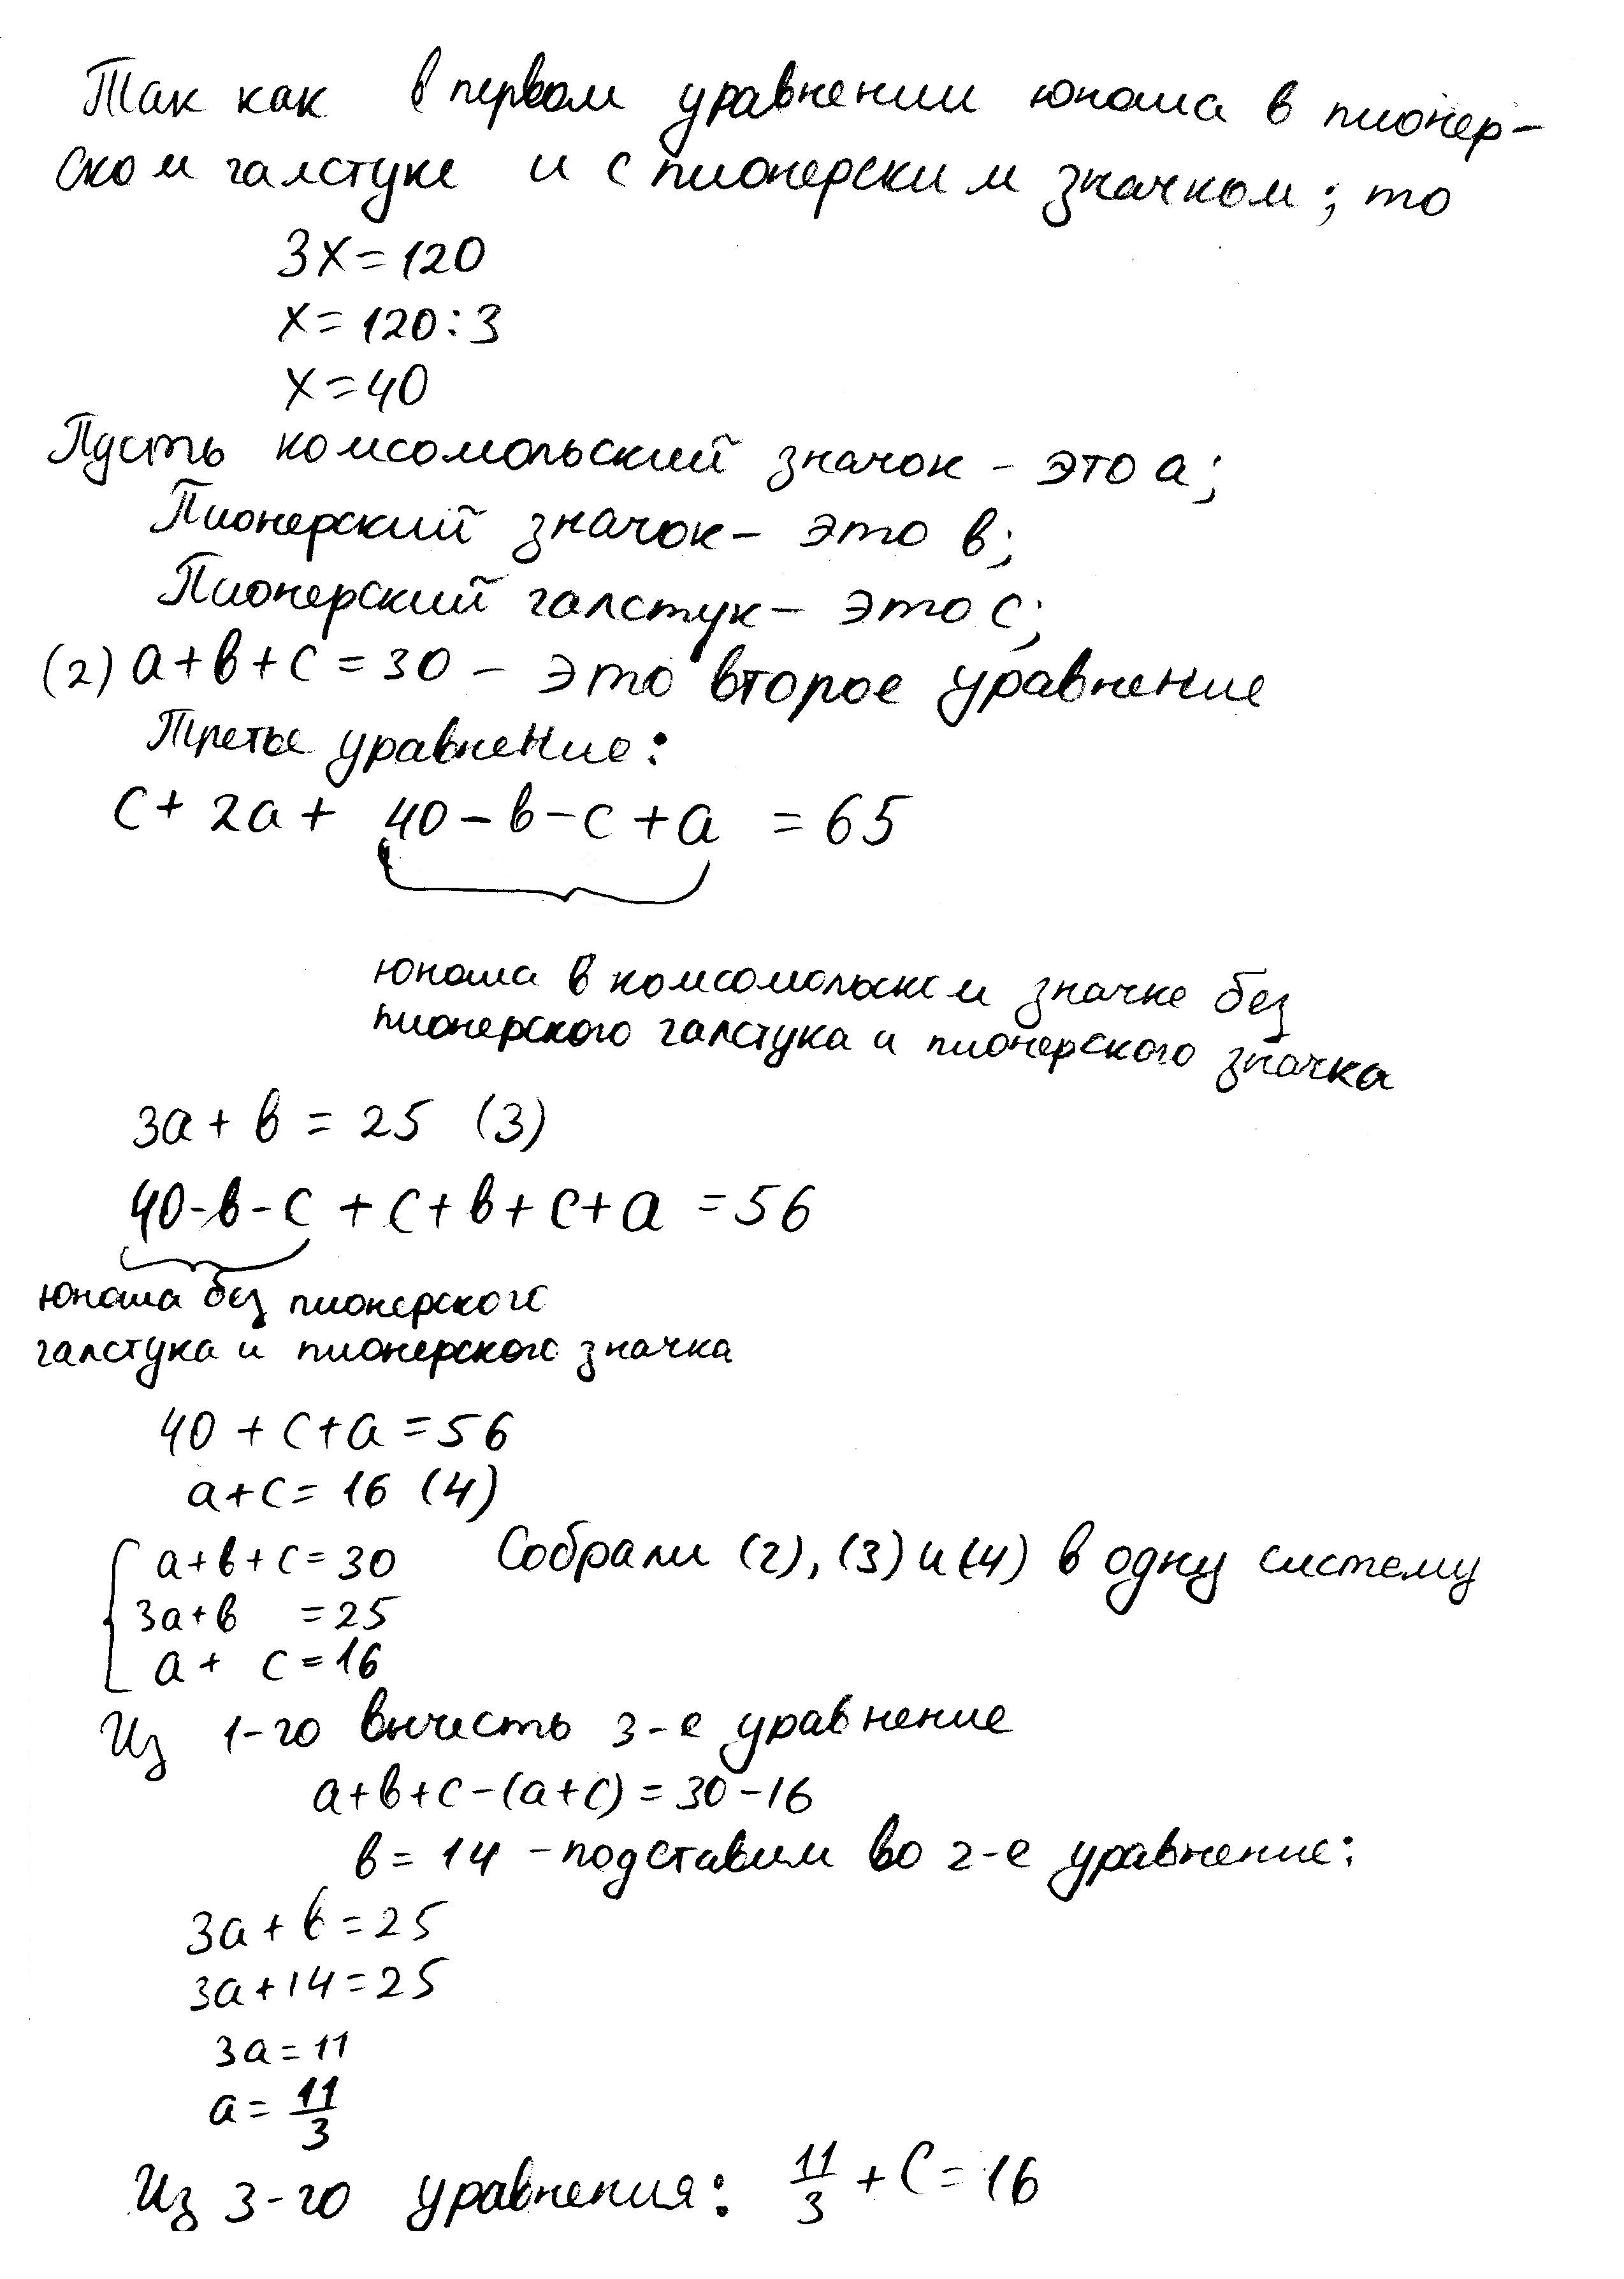 Так как в первом уравнении юноша в пионер-
ском галстуке и с пионерским значком; то
3x=120
x=120:3
x=40
Пусть комсомольский значок - это a;
Пионерский значок - это в;
Пионерский галстук - это с;
(2) a+в+с=30 - это второе уравнение
Третье уравнение:
с+2a+40-в-с+a=65
юноша в комсомольском значке без
пионерского галстука и пионерского значка
3a+в=25 (3)
40-в-с+с+в+с+a=56
юноша без пионерского
галстука и пионерского значка
40+с+a=56
a+с=16 (4)
a+в+с=30 Собрали (2), (3) и (4) в одну систему
3a+в =25
a+ с=16
Из 1-го вычесть 3-е уравнение
a+в+с-(a+с)=30-16
в=14 - подставим во 2-е уравнение:
3a+в=25
3a+14=25
3a=11
a=11/3
Из 3-го уравнения: 11/3+с=16